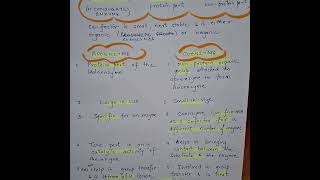 (or CONJUGATED ENZYME)
protein part
Co-factor is small, heat stable & it either
organic or inorganic
APOENZYME
COENZYME
1 Protein part of the
Holoenzyme
1 Non-protein organic
group attached to
apoenzyme to form
holoenzyme
2 Large in size
2 Small in size
3 Specific for an enzyme
3 Coenzyme can
as a cofactor for a
different number of enzymes
4 Take part in only
catalytic activity of
the enzyme
4 Helps in bringing
contact between the
substrate & enzyme
group transfer
& is thermolabile
Involved in group
transfer & is heat